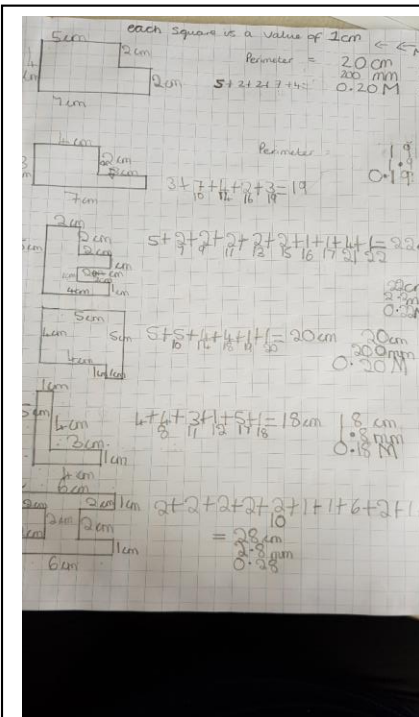 each square is a value of 1cm
5cm
2cm
2cm
7cm
Perimeter = 20cm
200 mm
5+2+2+7+4= 0.20M
4cm
2cm
7cm
Perimeter
1.9
0.19
3+7+4+2+3=19
10 14 16 19
2cm
2cm
2cm
cm
4cm
1cm
5+2+2+2+2+2+1+1+4+1=22
7 9 11 13 15 16 17 21 22
22cm
5cm
4cm
5cm
4cm
1cm
5+5+4+4+1+1=20cm
10 14 18 19 20
20cm
200mm
0.20M
1cm
4cm
3cm
1cm
4cm
4+4+3+1+5+1=18cm
8 11 12 17 18
18cm
1.8mm
0.18M
6cm
2cm
2cm
1cm
2cm
2cm
1cm
6cm
2+2+2+2+2+1+1+6+2+1
10
=28cm
2.8mm
0.28